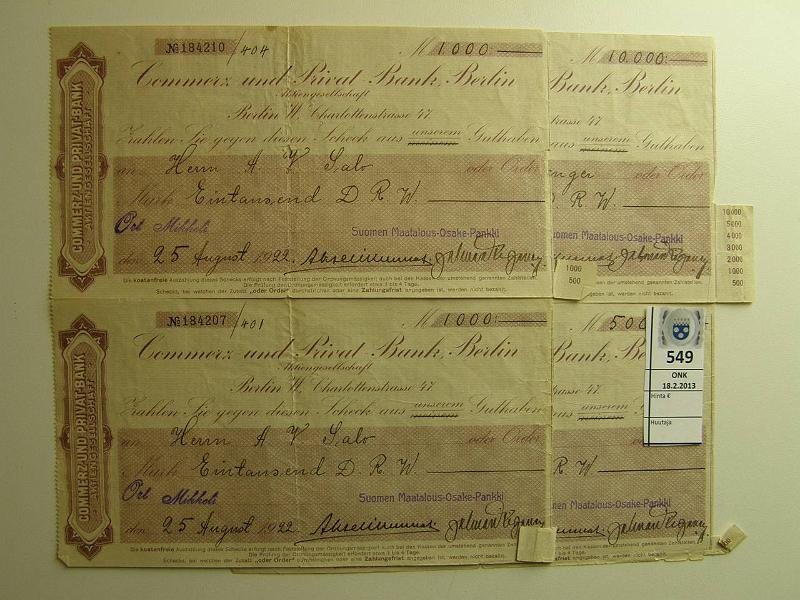 №184210/404 M 1000
Commerz und Privat Bank, Berlin
Aktiengesellschaft
Berlin W. Charlottenstrasse 47.
Zahlen Sie gegen diesen Scheck aus unserem Guthaben
an Herrn A V Salo oder Order
Mark Eintausend D. R. W.
Ort Mikkeli
Suomen Maatalous-Osake-Pankki
den 25 August 1922.
COMMERZ-UND PRIVAT-BANK
AKTIENGESELLSCHAFT
Die kostenfreie Auszahlung dieses Schecks erfolgt nach Feststellung der Ordnungsmässigkeit auch bei den Kassen der umstehend genannten Zahlstellen.
Die Prüfung der Ordnungsmässigkeit erfordert etwa 3 bis 4 Tage.
Schecks, bei welchen der Zusatz „oder Order" durchstrichen oder eine Zahlungsfrist angegeben ist, werden nicht bezahlt.
M 10.000
Bank, Berlin
trasse 47.
aus unserem Guthaben
enger oder Order
R. W.
omen Maatalous-Osake-Pankki
10000
5000
4000
3000
2000
1000
500
1000
500
№184207/401 M 1000
Commerz und Privat Bank, Berlin
Aktiengesellschaft
Berlin W. Charlottenstrasse 47.
Zahlen Sie gegen diesen Scheck aus unserem Guthaben
an Herrn A V Salo oder Order
Mark Eintausend D. R. W.
Ort Mikkeli
Suomen Maatalous-Osake-Pankki
den 25 August 1922.
COMMERZ-UND PRIVAT-BANK
AKTIENGESELLSCHAFT
Die kostenfreie Auszahlung dieses Schecks erfolgt nach Feststellung der Ordnungsmässigkeit auch bei den Kassen der umstehend genannten Zahlstellen.
Die Prüfung der Ordnungsmässigkeit erfordert etwa 3 bis 4 Tage.
Schecks, bei welchen der Zusatz „oder Order" durchstrichen oder eine Zahlungsfrist angegeben ist, werden nicht bezahlt.
M 500
Bank, Be
trasse 47.
aus unserem
R. W.
omen Maatalous-Osake-Pankki
549
ONK
18.2.2013
Hinta €
Huutaja